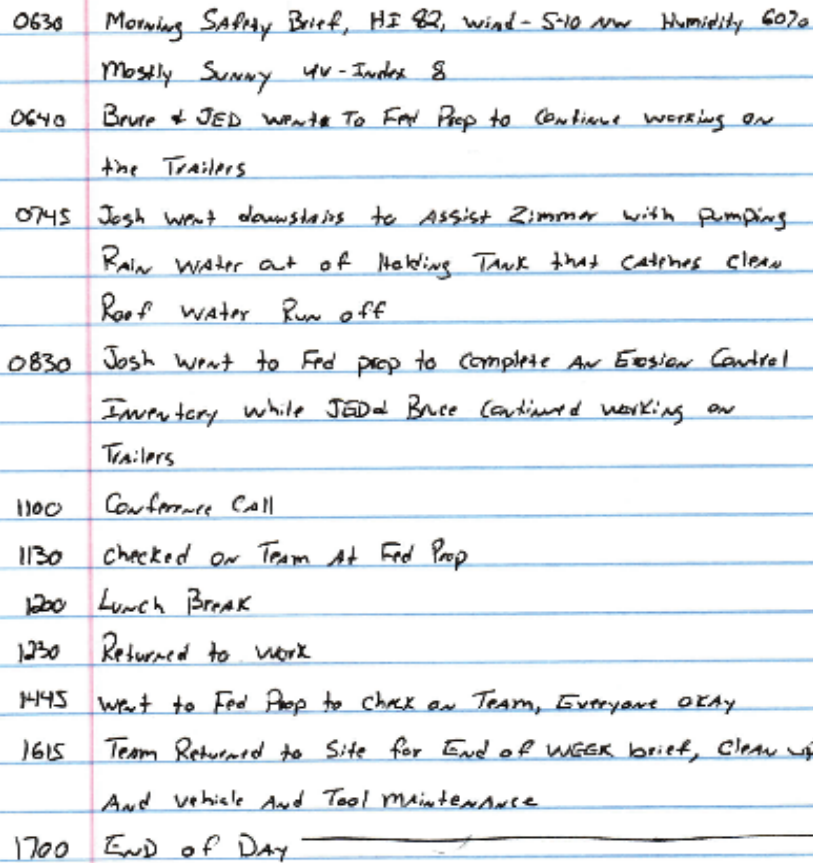 0630 Morning Safety Brief, HI 82, wind - 5-10 NW Humidity 60%
Mostly Sunny UV-Index 8
0640 Bruce & JED went To Fed Prop to Continue working on
the Trailers
0745 Josh went downstairs to Assist Zimmer with pumping
Rain Water out of Holding Tank that catches clean
Roof Water Run off
0830 Josh went to Fed prop to complete An Erosion Control
Inventory while JED & Bruce Continued working on
Trailers
1100 Conference Call
1130 checked on Team At Fed Prop
1200 Lunch Break
1230 Returned to work
1445 went to Fed Prop to check on Team, Everyone okay
1615 Team Returned to Site for End of WEEK brief, Clean up
And vehicle And Tool Maintenance
1700 END of Day